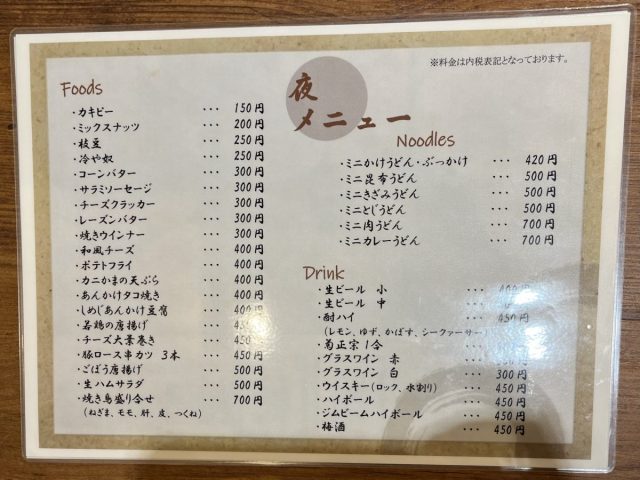 ※料金は内税表記となっております。
夜
メニュー
Foods
・カキピー ・・・ 150円
・ミックスナッツ ・・・ 200円
・枝豆 ・・・ 250円
・冷や奴 ・・・ 250円
・コーンバター ・・・ 300円
・サラミソーセージ ・・・ 300円
・チーズクラッカー ・・・ 300円
・レーズンバター ・・・ 300円
・焼きウインナー ・・・ 300円
・和風チーズ ・・・ 400円
・ポテトフライ ・・・ 400円
・カニかまの天ぷら ・・・ 400円
・あんかけタコ焼き ・・・ 400円
・しめじあんかけ豆腐 ・・・ 400円
・若鶏の唐揚げ ・・・
・チーズ大葉巻き ・・・ 450
・豚ロース串カツ 3本 ・・・ 450円
・ごぼう唐揚げ ・・・ 500円
・生ハムサラダ ・・・ 500円
・焼き鳥盛り合せ ・・・ 700円
(ねぎま、モモ、肝、皮、つくね)
Noodles
・ミニかけうどん・ぶっかけ ・・・ 420円
・ミニ昆布うどん ・・・ 500円
・ミニきざみうどん ・・・ 500円
・ミニとじうどん ・・・ 500円
・ミニ肉うどん ・・・ 700円
・ミニカレーうどん ・・・ 700円
Drink
・生ビール 小 ・・・ 400円
・生ビール 中 ・・・
・酎ハイ ・・・ 450円
(レモン、ゆず、かぼす、シークァーサー)
・菊正宗 1合 ・・・
・グラスワイン 赤 ・・・
・グラスワイン 白 ・・・ 300円
・ウイスキー(ロック、水割り) ・・・ 450円
・ハイボール ・・・ 450円
・ジムビームハイボール ・・・ 450円
・梅酒 ・・・ 450円